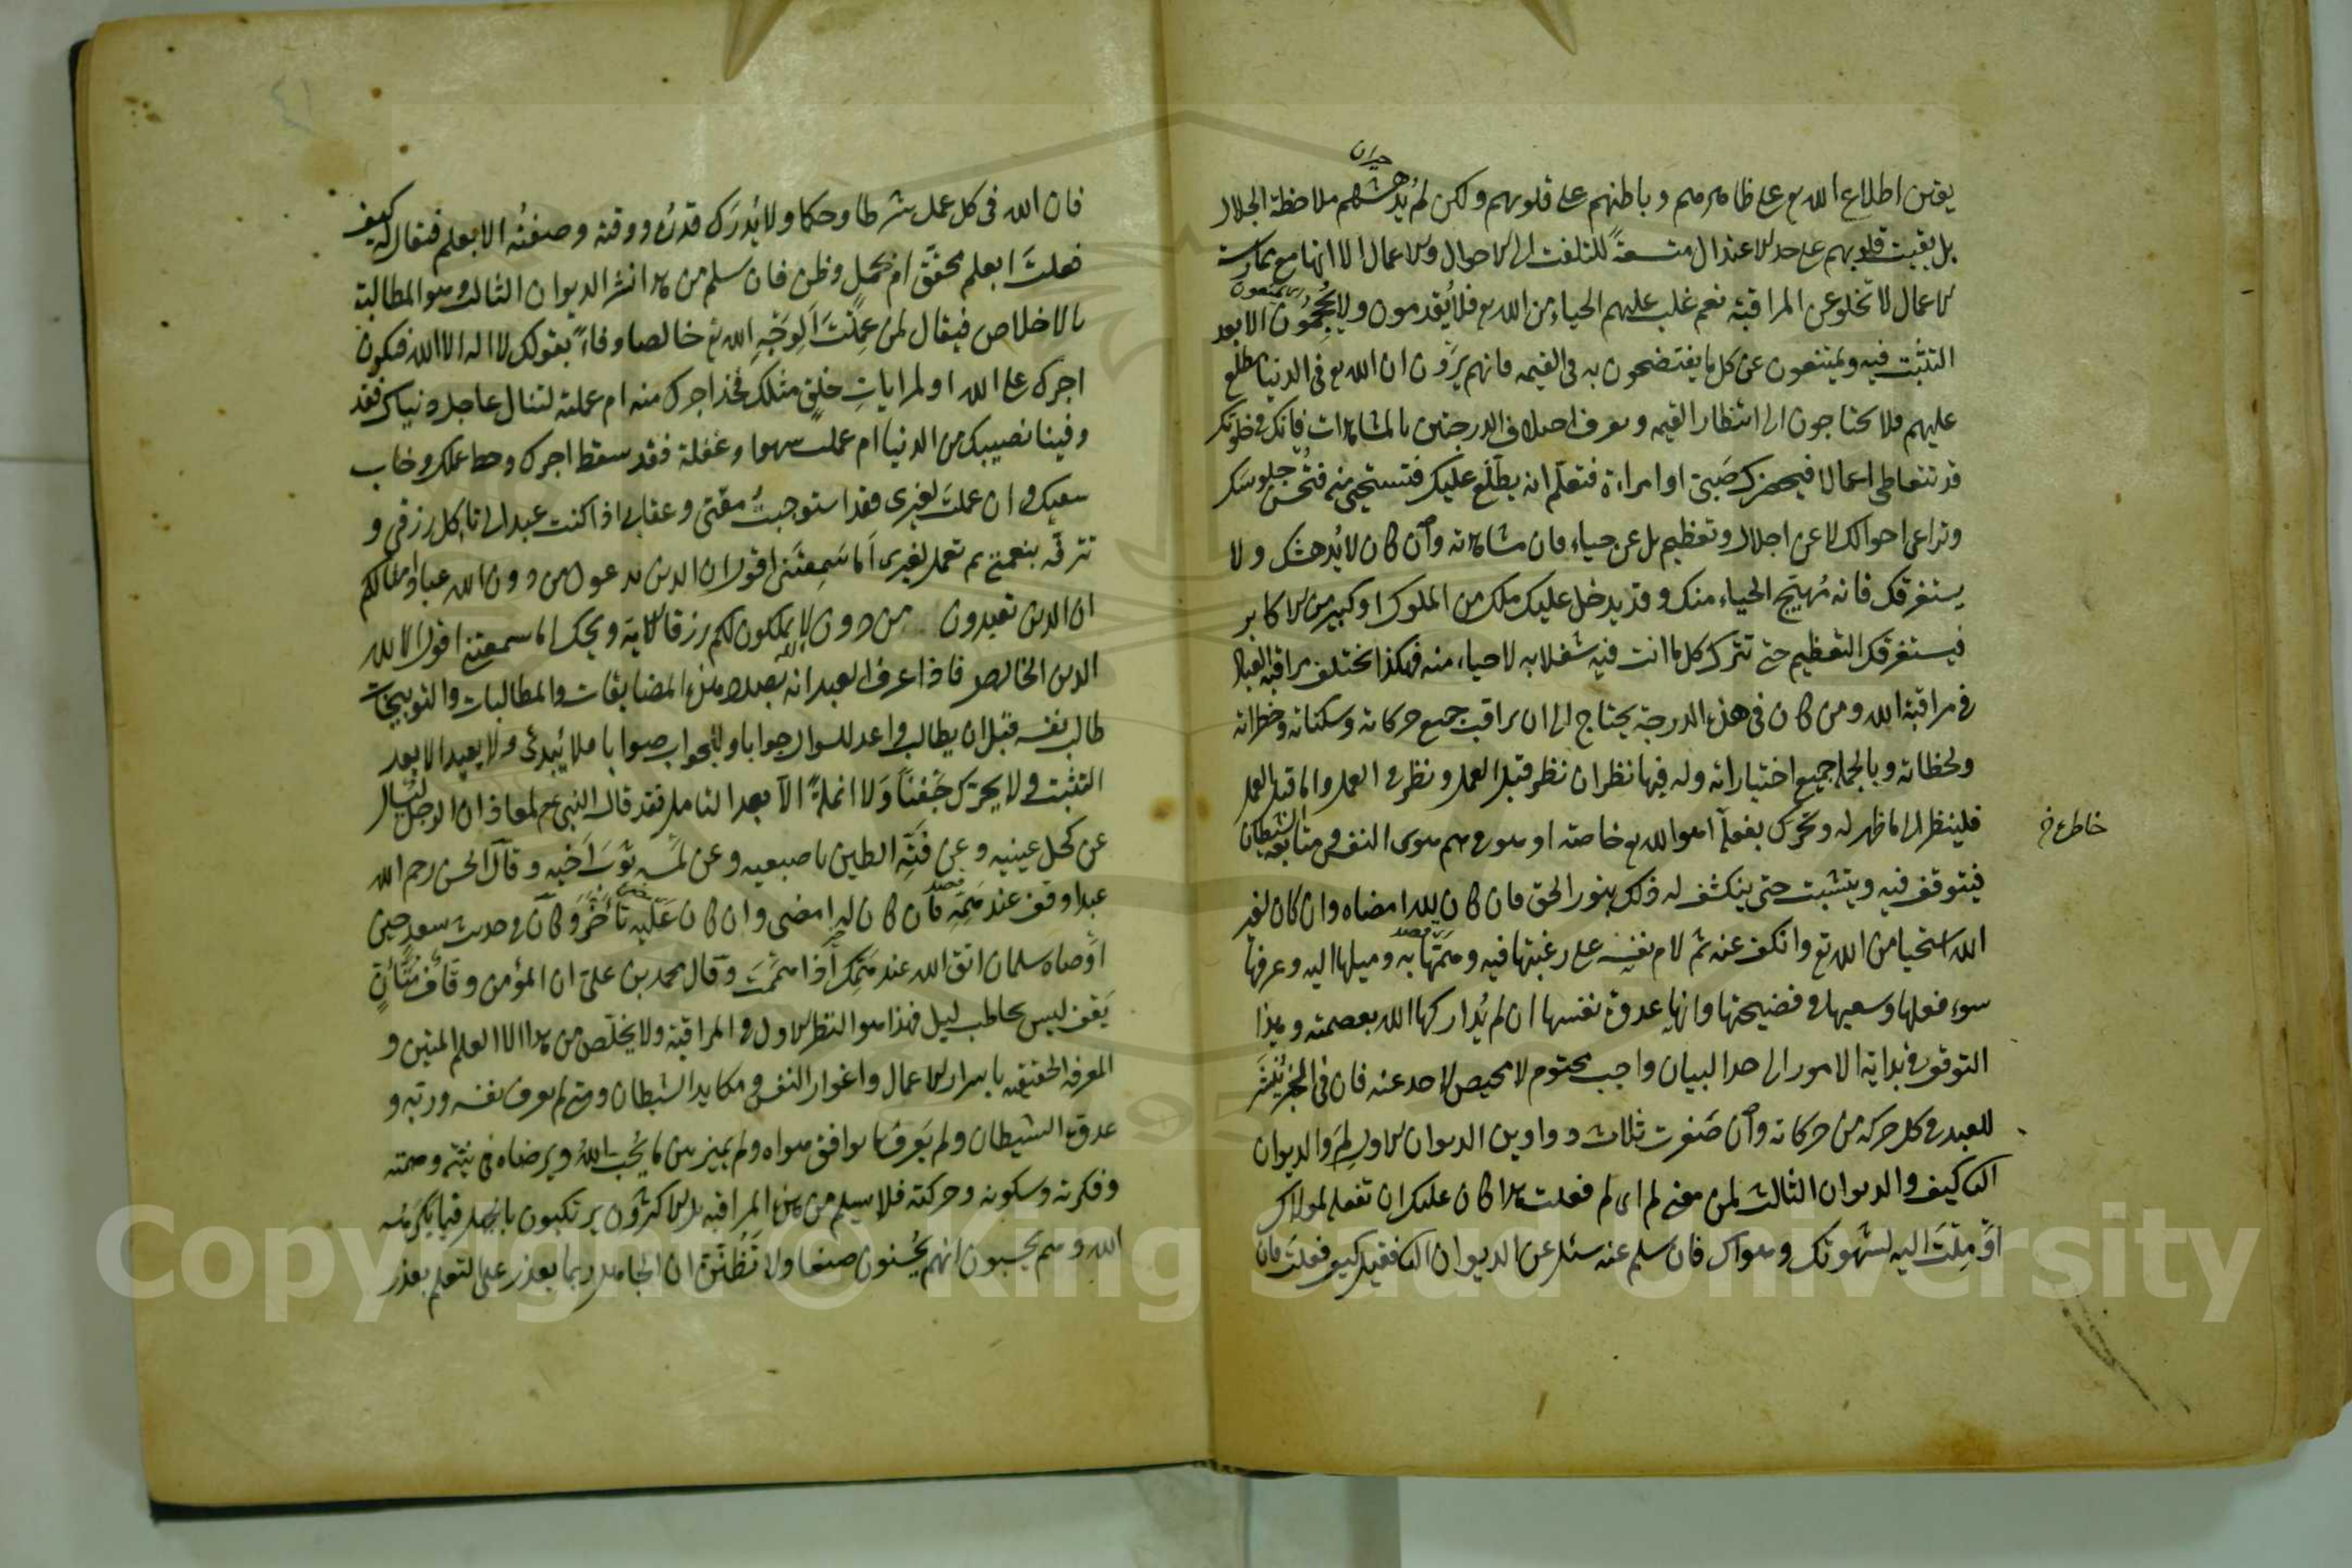 يقين اطلاع الله تع على ظاهرهم وباطنهم على قلوبهم ولكن لم يُدهشهم ملاحظة الجلال
حيران
بل بقيت قلوبهم على حد الاعتدال متسعةً للتلفت الى الاحوال والاعمال الا انها مع ممارسة
الاعمال لا تخلو عن المراقبة نعم غلب عليهم الحياء من الله تع فلا يُقدمون ولا يُحجمون الا بعد
التثبّت فيه ويمتنعون عن كل ما يفتضحون به فى القيمه فانهم يرَون ان الله تع فى الدنيا مطلع
عليهم فلا يحتاجون الى انتظار القيمه ويعرف اختلاف الدرجتين بالمشاهدات فانك فى خلوتك
قد تتعاطى اعمالا فيحضرك صَبىّ او امراة فتعلم انه يطّلع عليك فتستحيى منه فتُحسن جلوسك
وتراعى احوالك لا عن اجلال وتعظيم بل عن حياء فان مشاهدته وان كان لا يُدهشك ولا
يستغرقك فانه يُهيّج الحياء منك وقد يدخل عليك ملك من الملوك او كبير من الاكابر
فيستغرقك التعظيم حتى تترك كل ما انت فيه شغلا به لا حياء منه فهكذا تختلف مراقبة العباد
فى مراقبة الله ومن كان فى هذه الدرجة يحتاج الى ان يراقب جميع حركاته وسكناته وخطراته
ولحظاته وبالجملة جميع اختياراته وله فيها نظران نظر قبل العمل ونظر فى العمل واما قبل العمل
فلينظر الى ما ظهر له وتحرك بفعله اهو لله تع خاصة او هو فى هوى النفس ومتابعة الشيطان
خاطره خ
فيتوقف فيه ويتثبت حتى ينكشف له ذلك بنور الحق فان كان لله امضاه وان كان لغير
الله استحيا من الله تع وانكف عنه ثم لام نفسه على رغبتها فيه وهمّتها به وميلها اليه وعرفها
سوء فعلها وسعيها فى فضيحتها وانها عدوة نفسها ان لم يُداركها الله بعصمته وهذا
التوقف فى بداية الامور الى حد البيان واجب محتوم لا محيص لاحد عنه فان فى الخبر يُنشر
للعبد فى كل حركة من حركاته وان صَغرت ثلاث دواوين الديوان الاول لِمَ والديوان
الثانى كيف والديوان الثالث لمن معنى لم اى لم فعلت هذا كان عليك ان تفعله لمولاك
او مِلتَ اليه لشهوتك وهواك فان سلم عنه سئل عن الديوان الثانى فقيل كيف فعلت فان
فان الله فى كل عمل شرطا وحكما ولا يُدرَك قدرُه ووقته وصفتُه الا بعلم فيقال له كيف
فعلتَ ابعلم محقّق ام بجهل وظن فان سلم من هذا نشر الديوان الثالث وهو المطالبة
بالاخلاص فيقال لمن عملتَ الوجهِ الله تع خالصا وفاءً بقولك لا اله الا الله فيكون
اجرك على الله او لمراياتِ خلقٍ مثلك فخذ اجرك منه ام عملته لتنال عاجل دنياك فقد
وفينا نصيبك من الدنيا ام عملت سهوا وغفلة فقد سقط اجرك وحبط عملك وخاب
سعيك وان عملت لغيرى فقد استوجبت مقتى وعقابى اذ كنت عبدا لى تاكل رزقى و
تترفّه بنعمتى ثم تعمل لغيرى اَما سَمِعتَنى اقول ان الذين تدعون من دون الله عباد امثالكم
ان الذين تعبدون من دون الله لا يملكون لكم رزقا الاية ويحك اما سمعتنى اقول الا لله
الدين الخالص فاذا عرف العبد انه بصدد هذه المضايقات والمطالبات والتوبيخات
طالب نفسه قبل ان يطالب واعد للسوال جوابا وللجواب صوابا فلا يُبدئ ولا يعيد الا بعد
التثبت ولا يحرّك جَفنًا وَلا انملةً الا بعد التامل فقد قال النبى ع م لمعاذ ان الرجل ليُسال
عن كحل عينيه وعن فَتّه الطين باصبعيه وعن لمسه ثوبَ اَخيه وقال الحسن رحم الله
عبدا وقف عند همّه فان كان لله امضى وان كان عَلَيه تأخّر وكان فى حديث سعد حين
اَوصاه سلمان اتق الله عند هَمّك اذا هممت وقال محمد بن على ان المؤمن وقّاف مُتأنٍّ
يَقف ليس بحاطب ليل فهذا هو النظر الاول فى المراقبة ولا يخلّص من هذا الا العلم المتين و
المعرفة الحقيقيه باسرار الاعمال واغوار النفس ومكايد الشيطان ومتى لم يعرف نفسه وربّه و
عدوّه الشيطان ولم يَعرف ما يوافق هواه ولم يميز بين ما يُحبّ اللهُ ويرضاه فى نيّته وهمته
وفكرته وسكونه وحركته فلا يسلم من هذه المراقبة بل الاكثرون يرتكبون بالجهل فيما يكرهه
الله وهم يحسبون انهم يُحسنون صنعا ولا تَظُنّنّ ان الجاهل ربما يعذر على التعلم يعذر